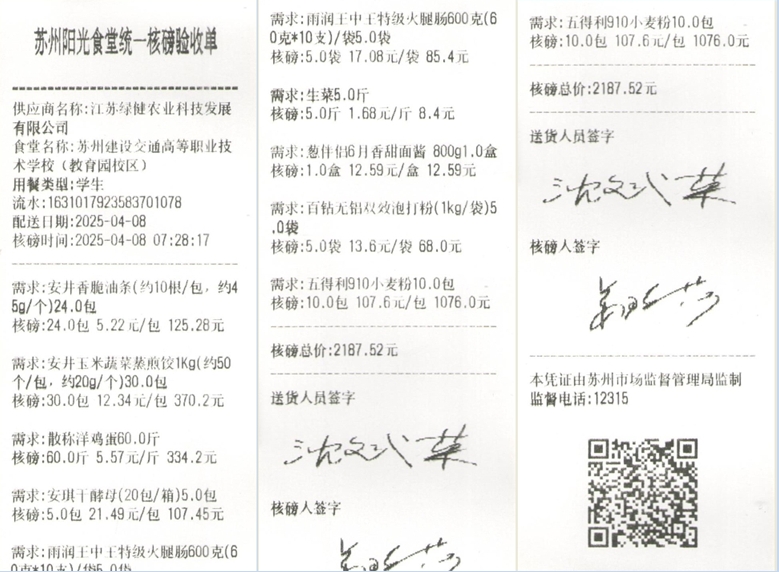 苏州阳光食堂统一核磅验收单
供应商名称:江苏绿健农业科技发展
有限公司
食堂名称:苏州建设交通高等职业技
术学校（教育园校区）
用餐类型:学生
流水:1631017923583701078
配送日期:2025-04-08
核磅时间:2025-04-08 07:28:17
需求:安井香脆油条(约10根/包，约4
5g/个)24.0包
核磅:24.0包 5.22元/包 125.28元
需求:安井玉米蔬菜蒸煎饺1Kg(约50
个/包，约20g/个)30.0包
核磅:30.0包 12.34元/包 370.2元
需求:散称洋鸡蛋60.0斤
核磅:60.0斤 5.57元/斤 334.2元
需求:安琪干酵母(20包/箱)5.0包
核磅:5.0包 21.49元/包 107.45元
需求:雨润王中王特级火腿肠600克(6
0克*10支)/袋5.0袋
需求:雨润王中王特级火腿肠600克(6
0克*10支)/袋5.0袋
核磅:5.0袋 17.08元/袋 85.4元
需求:生菜5.0斤
核磅:5.0斤 1.68元/斤 8.4元
需求:葱伴侣6月香甜面酱 800g1.0盒
核磅:1.0盒 12.59元/盒 12.59元
需求:百钻无铝双效泡打粉(1kg/袋)5
.0袋
核磅:5.0袋 13.6元/袋 68.0元
需求:五得利910小麦粉10.0包
核磅:10.0包 107.6元/包 1076.0元
核磅总价:2187.52元
送货人员签字
核磅人签字
需求:五得利910小麦粉10.0包
核磅:10.0包 107.6元/包 1076.0元
核磅总价:2187.52元
送货人员签字
核磅人签字
本凭证由苏州市场监督管理局监制
监督电话:12315